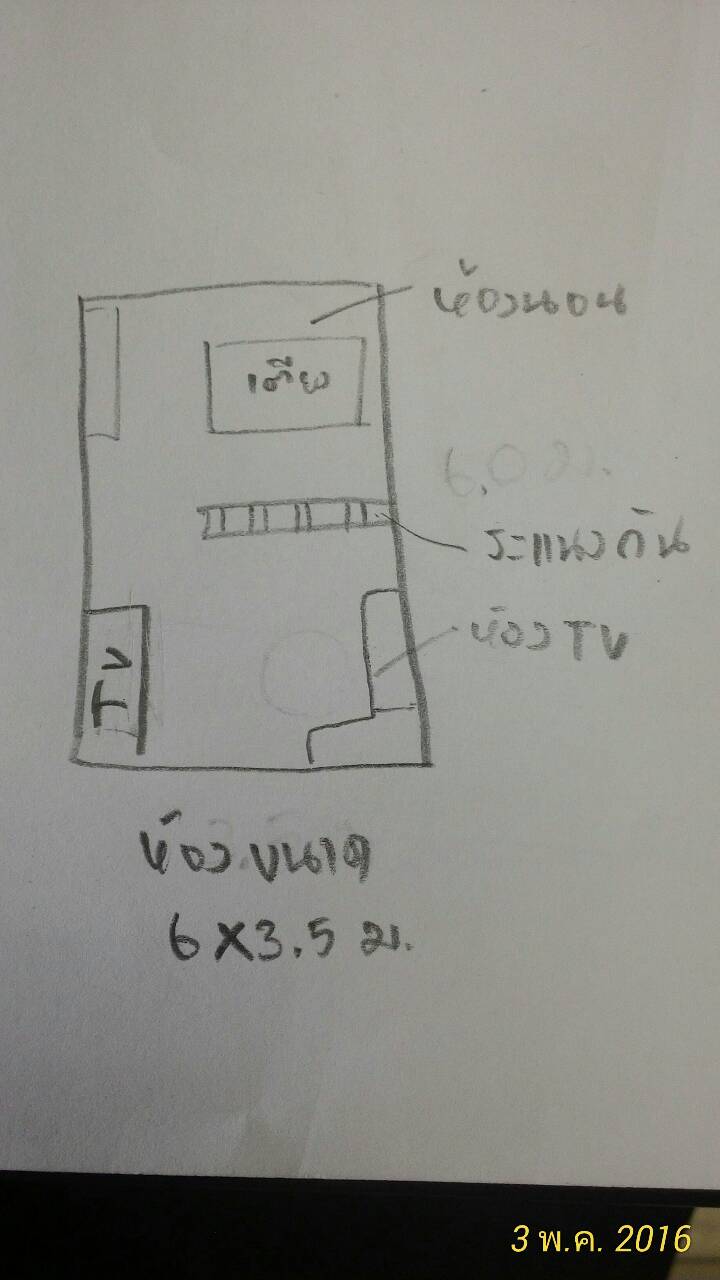 ห้องนอน
เตียง
6.0 ม.
ระแนงกัน
ห้อง TV
TV
ห้องขนาด
6 x 3.5 ม.
3 พ.ค. 2016